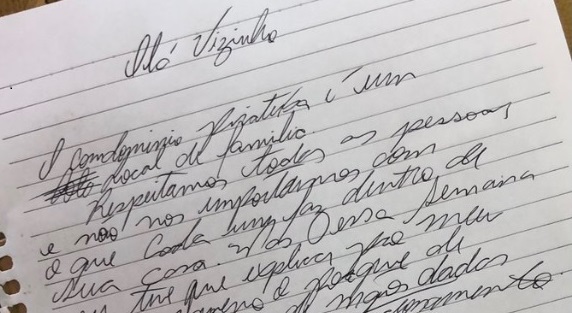 Alô Vizinho
O condominio piratika é um
local de familia.
Respeitamos todas as pessoas
e não nos importamos com
o que cada um faz dentro de
sua casa. Mas essa semana
tive que explicar pro meu
o porque de
mãos dadas